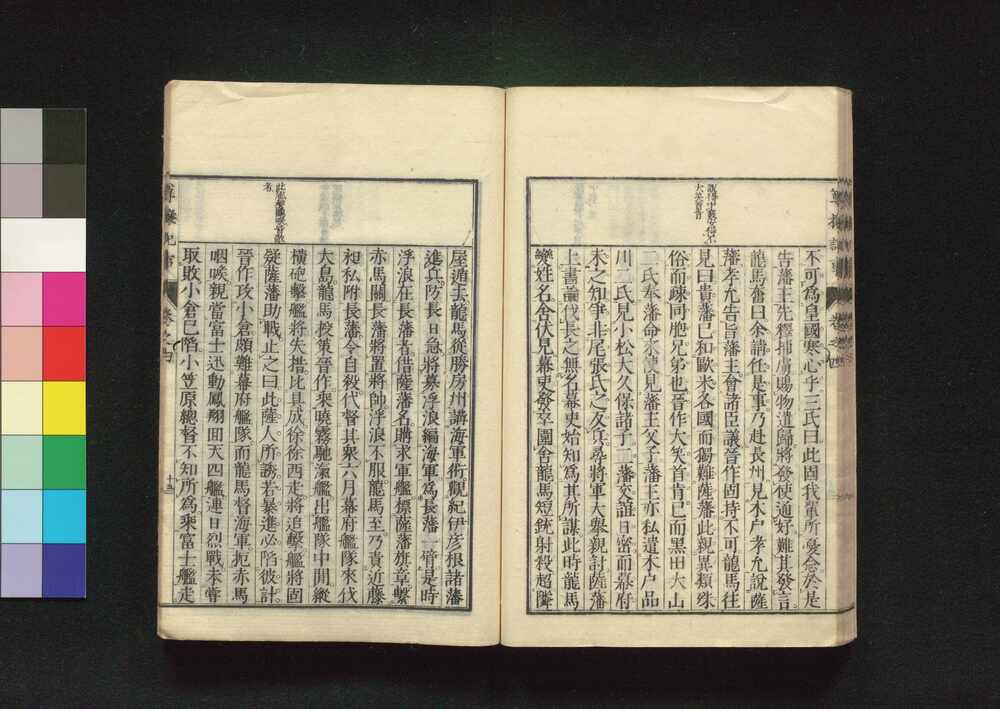 不可爲皇國寒心乎三氏曰此固我輩所憂念於是
告藩主先釋捕虜賜物遣歸將發使通好難其發言
龍馬奮曰余請任是事乃赴長州見木戸孝允說薩
藩孝允告旨藩主會諸臣議晉作固持不可龍馬往
見曰貴藩已和歐米各國而獨難薩藩此親異類殊
俗而疎同胞兄弟也晉作大笑首肯已而黑田大山
二氏奉藩命來使見藩主父子藩主亦私遣木戸品
川二氏見小松大久保諸子二藩交誼日密而幕府
未之知爭非尾張氏之久兵尋將軍大擧親討薩藩
上書論伐長之無名幕吏始知爲其所謀此時龍馬
變姓名舍伏見幕吏發卒圍舍龍馬短銃射殺超隣
屋遁去龍馬從勝房州講海軍術觀紀伊彥根諸藩
進兵防長日急將募浮浪編海軍爲長藩一臂是時
浮浪在長藩者借薩藩名購求軍艦標薩藩旗章繫
赤馬關長藩將置將帥浮浪不服龍馬至乃責近藤
昶私附長藩令自殺代督其衆六月幕府艦隊來伐
大島龍馬授策晉作乘曉霧馳滊艦出艦隊中間縱
橫砲擊艦將失措比具成徐徐西走將追擊艦將固
疑薩藩助戰止之曰此薩人所誘若暴進必陷彼計
晉作攻小倉頗難幕府艦隊而龍馬督海軍扼赤馬
咽喉親當富士迅動鳳翔囘天四艦連日烈戰未嘗
取敗小倉已陷小笠原總督不知所爲乘富士艦走
卷之四
十五